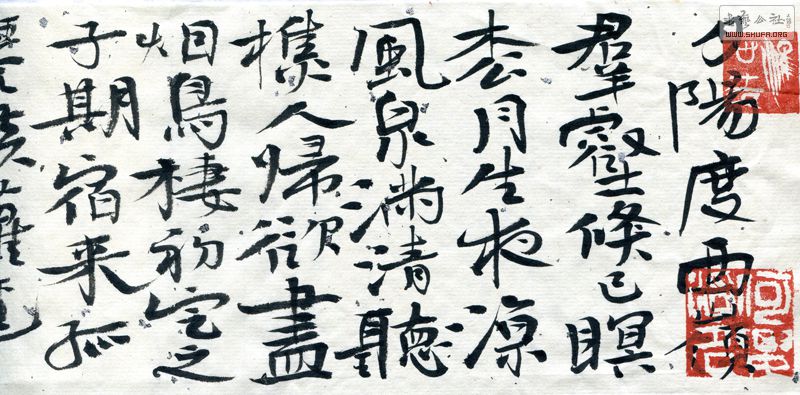 夕陽度西嶺
羣壑倏已瞑
松月生夜凉
風泉滿清聽
樵人歸欲盡
烟鳥棲初定之
子期宿来孤
書藝公社
WWW.SHUFA.ORG